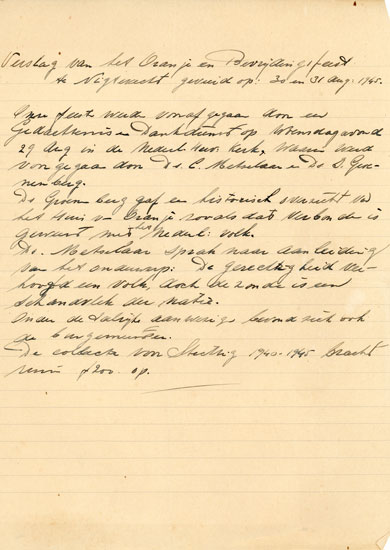 Verslag van het Oranje en Bevrijdingsfeest
te Nigtevecht gevierd op: 30 en 31 aug. 1945.
Onze feesten werden vooraf gegaan door een
Gedachtenis en Dankdienst op Woensdagavond
29 Aug in de Nederl Herv Kerk, waarin werd
voorgegaan door Ds. C. Metselaar en Ds. D. Groe-
nenberg.
Ds Groenenberg gaf een historisch overzicht van
het Huis v. Oranje zooals dat verbonden is
geweest met het Nederl. volk.
Ds. Metselaar sprak naar aanleiding
van het onderwerp: De gerechtigheid ver-
hoogd een volk, doch de zonde is een
schandvlek der natie.
Onder de talrijke aanwezigen bevond zich ook
de burgemeester.
De collecte voor Stichting 1940-1945 bracht
ruim ƒ 200. op.